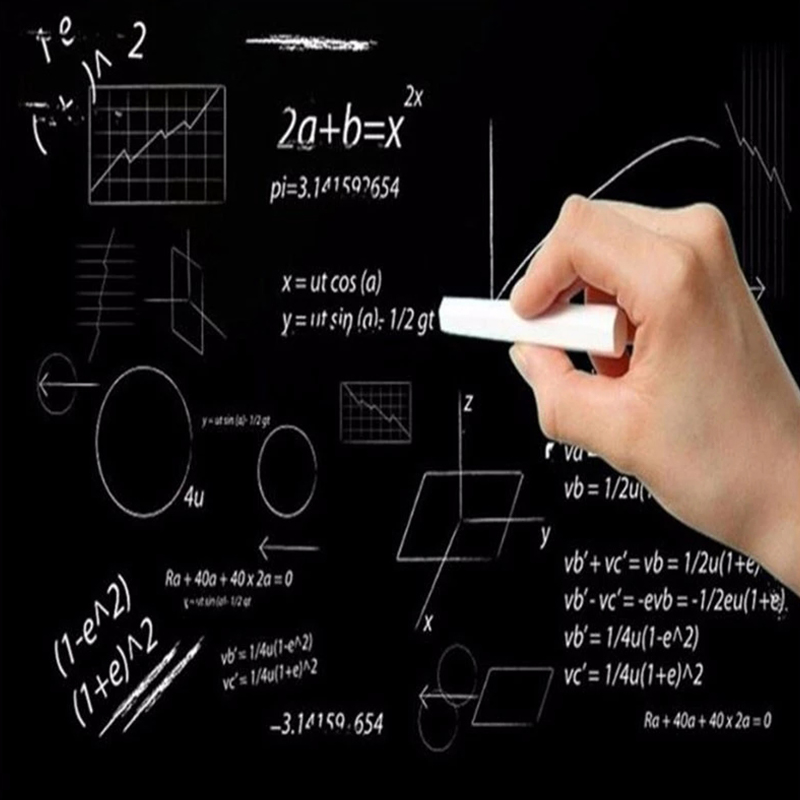 2
2a+b=x^2x
pi=3.141592654
x = ut cos (a)
y = ut sin (a)- 1/2 gt
y = ut sin (a)- 1/2 gt
4u
z
y
x
va =
vb = 1/2u(
vb' + vc' = vb = 1/2u(1+e)
vb' - vc' = -evb = -1/2eu(1+e)
vb' = 1/4u(1-e^2)
vc' = 1/4u(1+e)^2
Ra + 40a + 40 x 2a = 0
(1-e^2)
(1+e)^2
vb' = 1/4u(1-e^2)
vc' = 1/4u(1+e)^2
-3.14159 654
Ra + 40a + 40 x 2a = 0